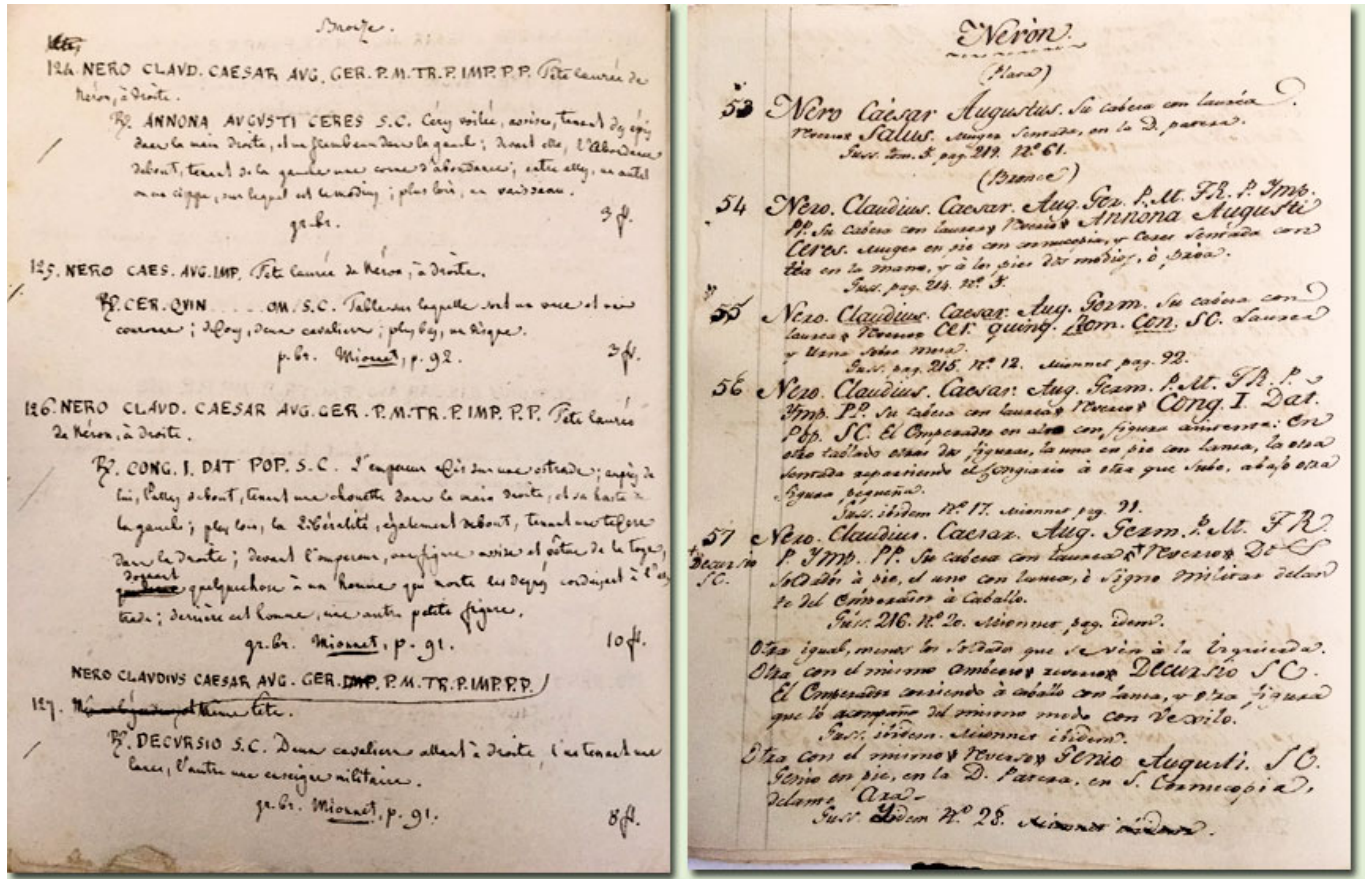 Bronze.
124. NERO CLAVD. CAESAR AVG. GER. P. M. TR. P. IMP. P. P. Tête laurée de
Néron, à droite.
℞. ANNONA AVGVSTI CERES S.C. Cérès voilée, assise, tenant des épis
dans la main droite, et un flambeau dans la gauche; devant elle, l'Abondance
debout, tenant de la gauche une corne d'abondance; entre elles, un autel
ou un cippe, sur lequel est le modius; plus loin, un vaisseau.
gr. br. 3 f.
125. NERO CAES. AVG. IMP. Tête laurée de Néron, à droite.
℞. CER. QVIN ..... OM. S.C. Table sur laquelle est un vase et une
couronne; deux cavaliers; plus bas, un disque.
p. br. Mionnet, p. 92. 3 f.
126. NERO CLAVD. CAESAR AVG. GER. P. M. TR. P. IMP. P. P. Tête laurée
de Néron, à droite.
℞. CONG. I. DAT POP. S.C. L'empereur assis sur une estrade; auprès de
lui, Pallas debout, tenant une chouette dans la main droite, et sa haste de
la gauche; plus loin, la Libéralité, également debout, tenant une tessère
dans la droite; devant l'empereur, une figure assise et vêtue de la toge,
donnant
quelquechose à un homme qui monte les degrés conduisant à l'es
trade; derrière cet homme, une autre petite figure.
gr. br. Mionnet, p. 91. 10 f.
NERO CLAVDIVS CAESAR AVG. GER. P. M. TR. P. IMP. P. P.
127. Même tête.
℞. DECVRSIO S.C. Deux cavaliers allant à droite, l'un tenant une
lance, l'autre une enseigne militaire.
gr. br. Mionnet, p. 91. 8 f.
Nerón.
(Plata)
53 Nero Caesar Augustus. Su cabeza con laurea.
reverso Salus. Muger sentada, en la D. patera.
Guss. tom. 3. pag. 219. Nº 61.
(Bronce)
54 Nero. Claudius. Caesar. Aug. Ger. P. M. TR. P. Imp.
PP. Su cabeza con laurea reverso Annona Augusti
Ceres. Muger en pie con cornucopia, y Ceres sentada con
tea en la mano, y à los pies dos modios, ò proa.
Guss. pag. 214. nº 5.
55 Nero. Claudius. Caesar. Aug. Germ. Su cabeza con
laurea reverso Cer. quinq. Rom. Con. SC. Laurea
y Urna sobre mesa.
Guss. pag. 215. Nº 12. Mionnet pag. 92.
56 Nero. Claudius. Caesar. Aug. Germ. P. M. TR. P.
Imp. PP. Su cabeza con laurea reverso Cong. I. Dat.
Pop. SC. El Emperador en alto con figura asistente: en
otro tablado otras dos figuras, la una en pie con lanza, la otra
sentada repartiendo el Congiario à otra que sube, abajo otra
figura pequeña.
Guss. ibidem Nº 17. Mionnet pag. 91.
57 Nero. Claudius. Caesar. Aug. Germ. P. M. TR
P. Imp. PP. Su cabeza con laurea reverso
Decursio
SC.
Soldados à pie, el uno con lanza, ò signo militar delan
te del Emperador à Caballo.
Guss. 216. Nº 20. Mionnet pag. idem.
Otra igual, menos los Soldados que se ven à la izquierda.
Otra con el mismo reverso Decursio SC.
El Emperador corriendo à caballo con lanza, y otra figura
que lo acompaña del mismo modo con Vexilo.
Guss. ibidem. Mionnet ibidem.
Otra con el mismo reverso Genio Augusti. SC.
Genio en pie, en la D. Patera, en S. Cornucopia,
delante Ara.
Guss. Ydem Nº 28.